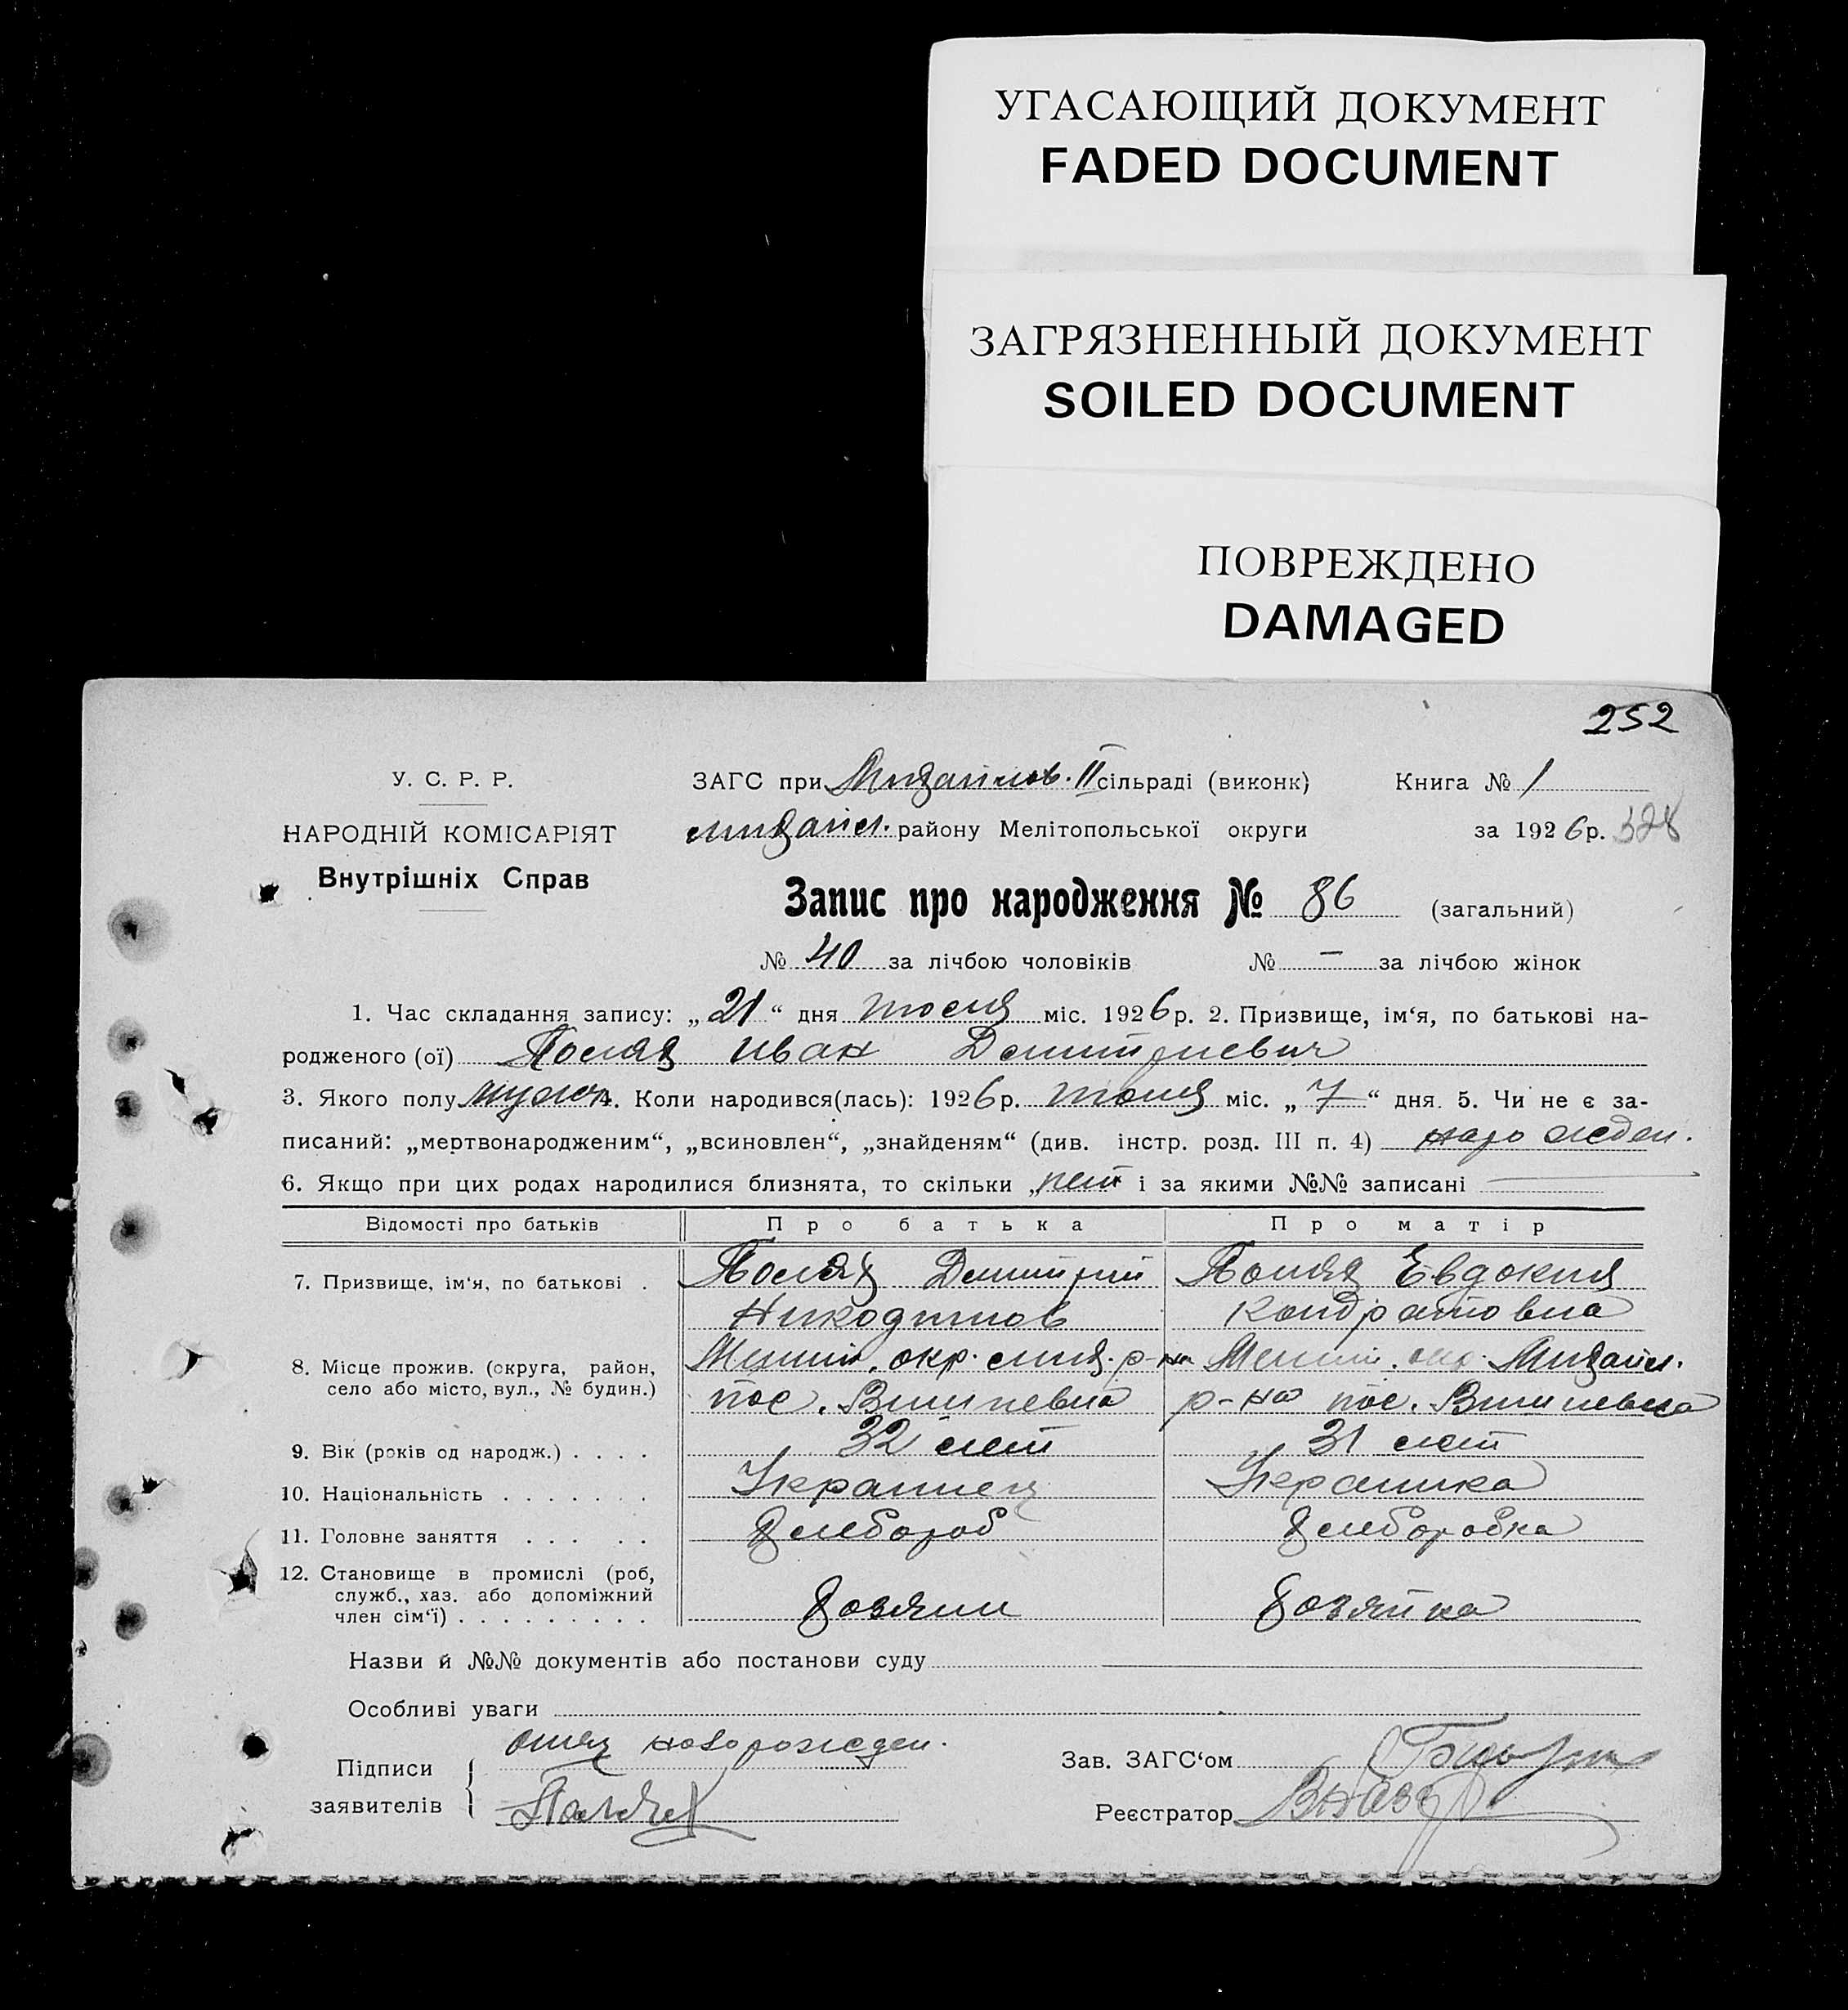 УГАСАЮЩИЙ ДОКУМЕНТ
FADED DOCUMENT
ЗАГРЯЗНЕННЫЙ ДОКУМЕНТ
SOILED DOCUMENT
ПОВРЕЖДЕНО
DAMAGED
252
У. С. Р. Р.
НАРОДНІЙ КОМІСАРІЯТ
Внутрішніх Справ
ЗАГС при Михайлов. II сільраді (виконк) Книга № 1
Михайл. району Мелітопольської округи за 1926 р. 328
Запис про народження № 86 (загальний)
№ 40 за лічбою чоловіків № — за лічбою жінок
1. Час складання запису: „21“ дня июля міс. 1926 р. 2. Призвище, ім‘я, по батькові на-
родженого (ої) Полях Иван Димитриевич
3. Якого полу мужс. 4. Коли народився(лась): 1926 р. июля міс. „7“ дня. 5. Чи не є за-
писаний: „мертвонародженим“, „всиновлен“, „знайденям“ (див. інстр. розд. III п. 4) нарожден.
6. Якщо при цих родах народилися близнята, то скільки „нет і за якими №№ записані —
Відомості про батьків Про батька Про матір
7. Призвище, ім‘я, по батькові . Полях Димитрий Полях Евдокия
Никодимов Кондратовна
8. Місце прожив. (округа, район, Мелит. окр. мих. р-на Мелит. окр. Михайл.
село або місто, вул., № будин.) пос. Вишневка р-на пос. Вишневка
9. Вік (років од народж.) . . . . 32 лет 31 лет
10. Національність . . . . . . . Украинец Украинка
11. Головне заняття . . . . . Хлебороб Хлеборобка
12. Становище в промислі (роб,
служб., хаз. або допоміжний Хозяин Хозяйка
член сім‘ї) . . . . . . . . .
Назви й №№ документів або постанови суду
Особливі уваги
отец новорожден.
Підписи Зав. ЗАГС‘ом
заявителів Полях Реєстратор